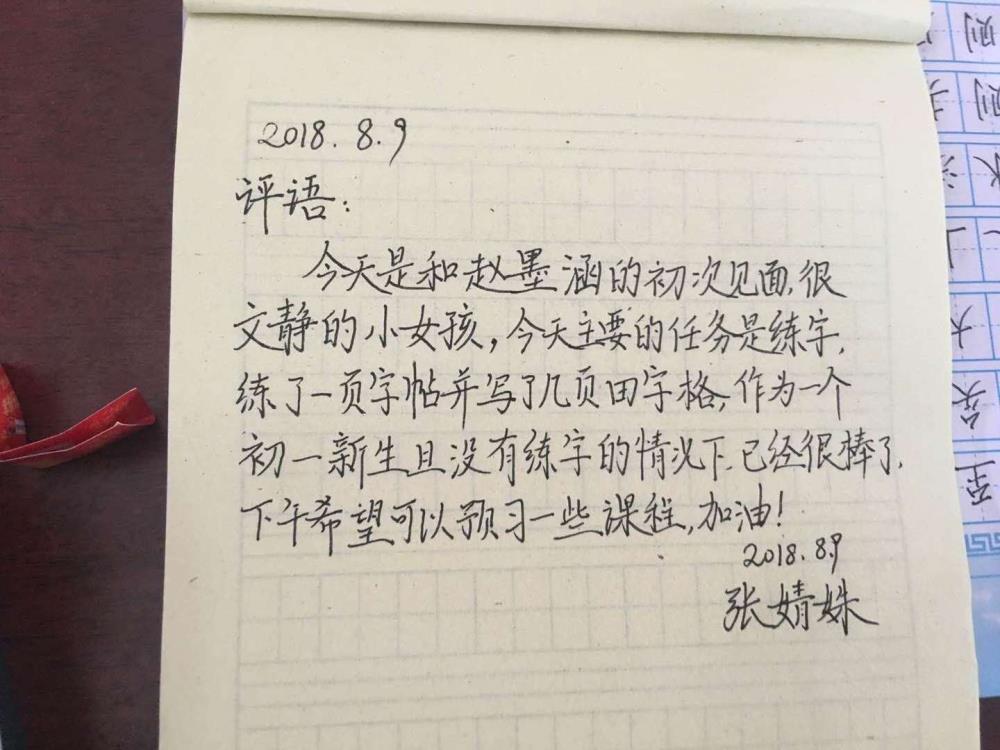 2018.8.9
评语：
今天是和赵墨涵的初次见面，很
文静的小女孩，今天主要的任务是练字，
练了一页字帖并写了几页田字格，作为一个
初一新生且没有练字的情况下，已经很棒了，
下午希望可以预习一些课程，加油！
2018.8.9
张婧姝
则
则
大
至